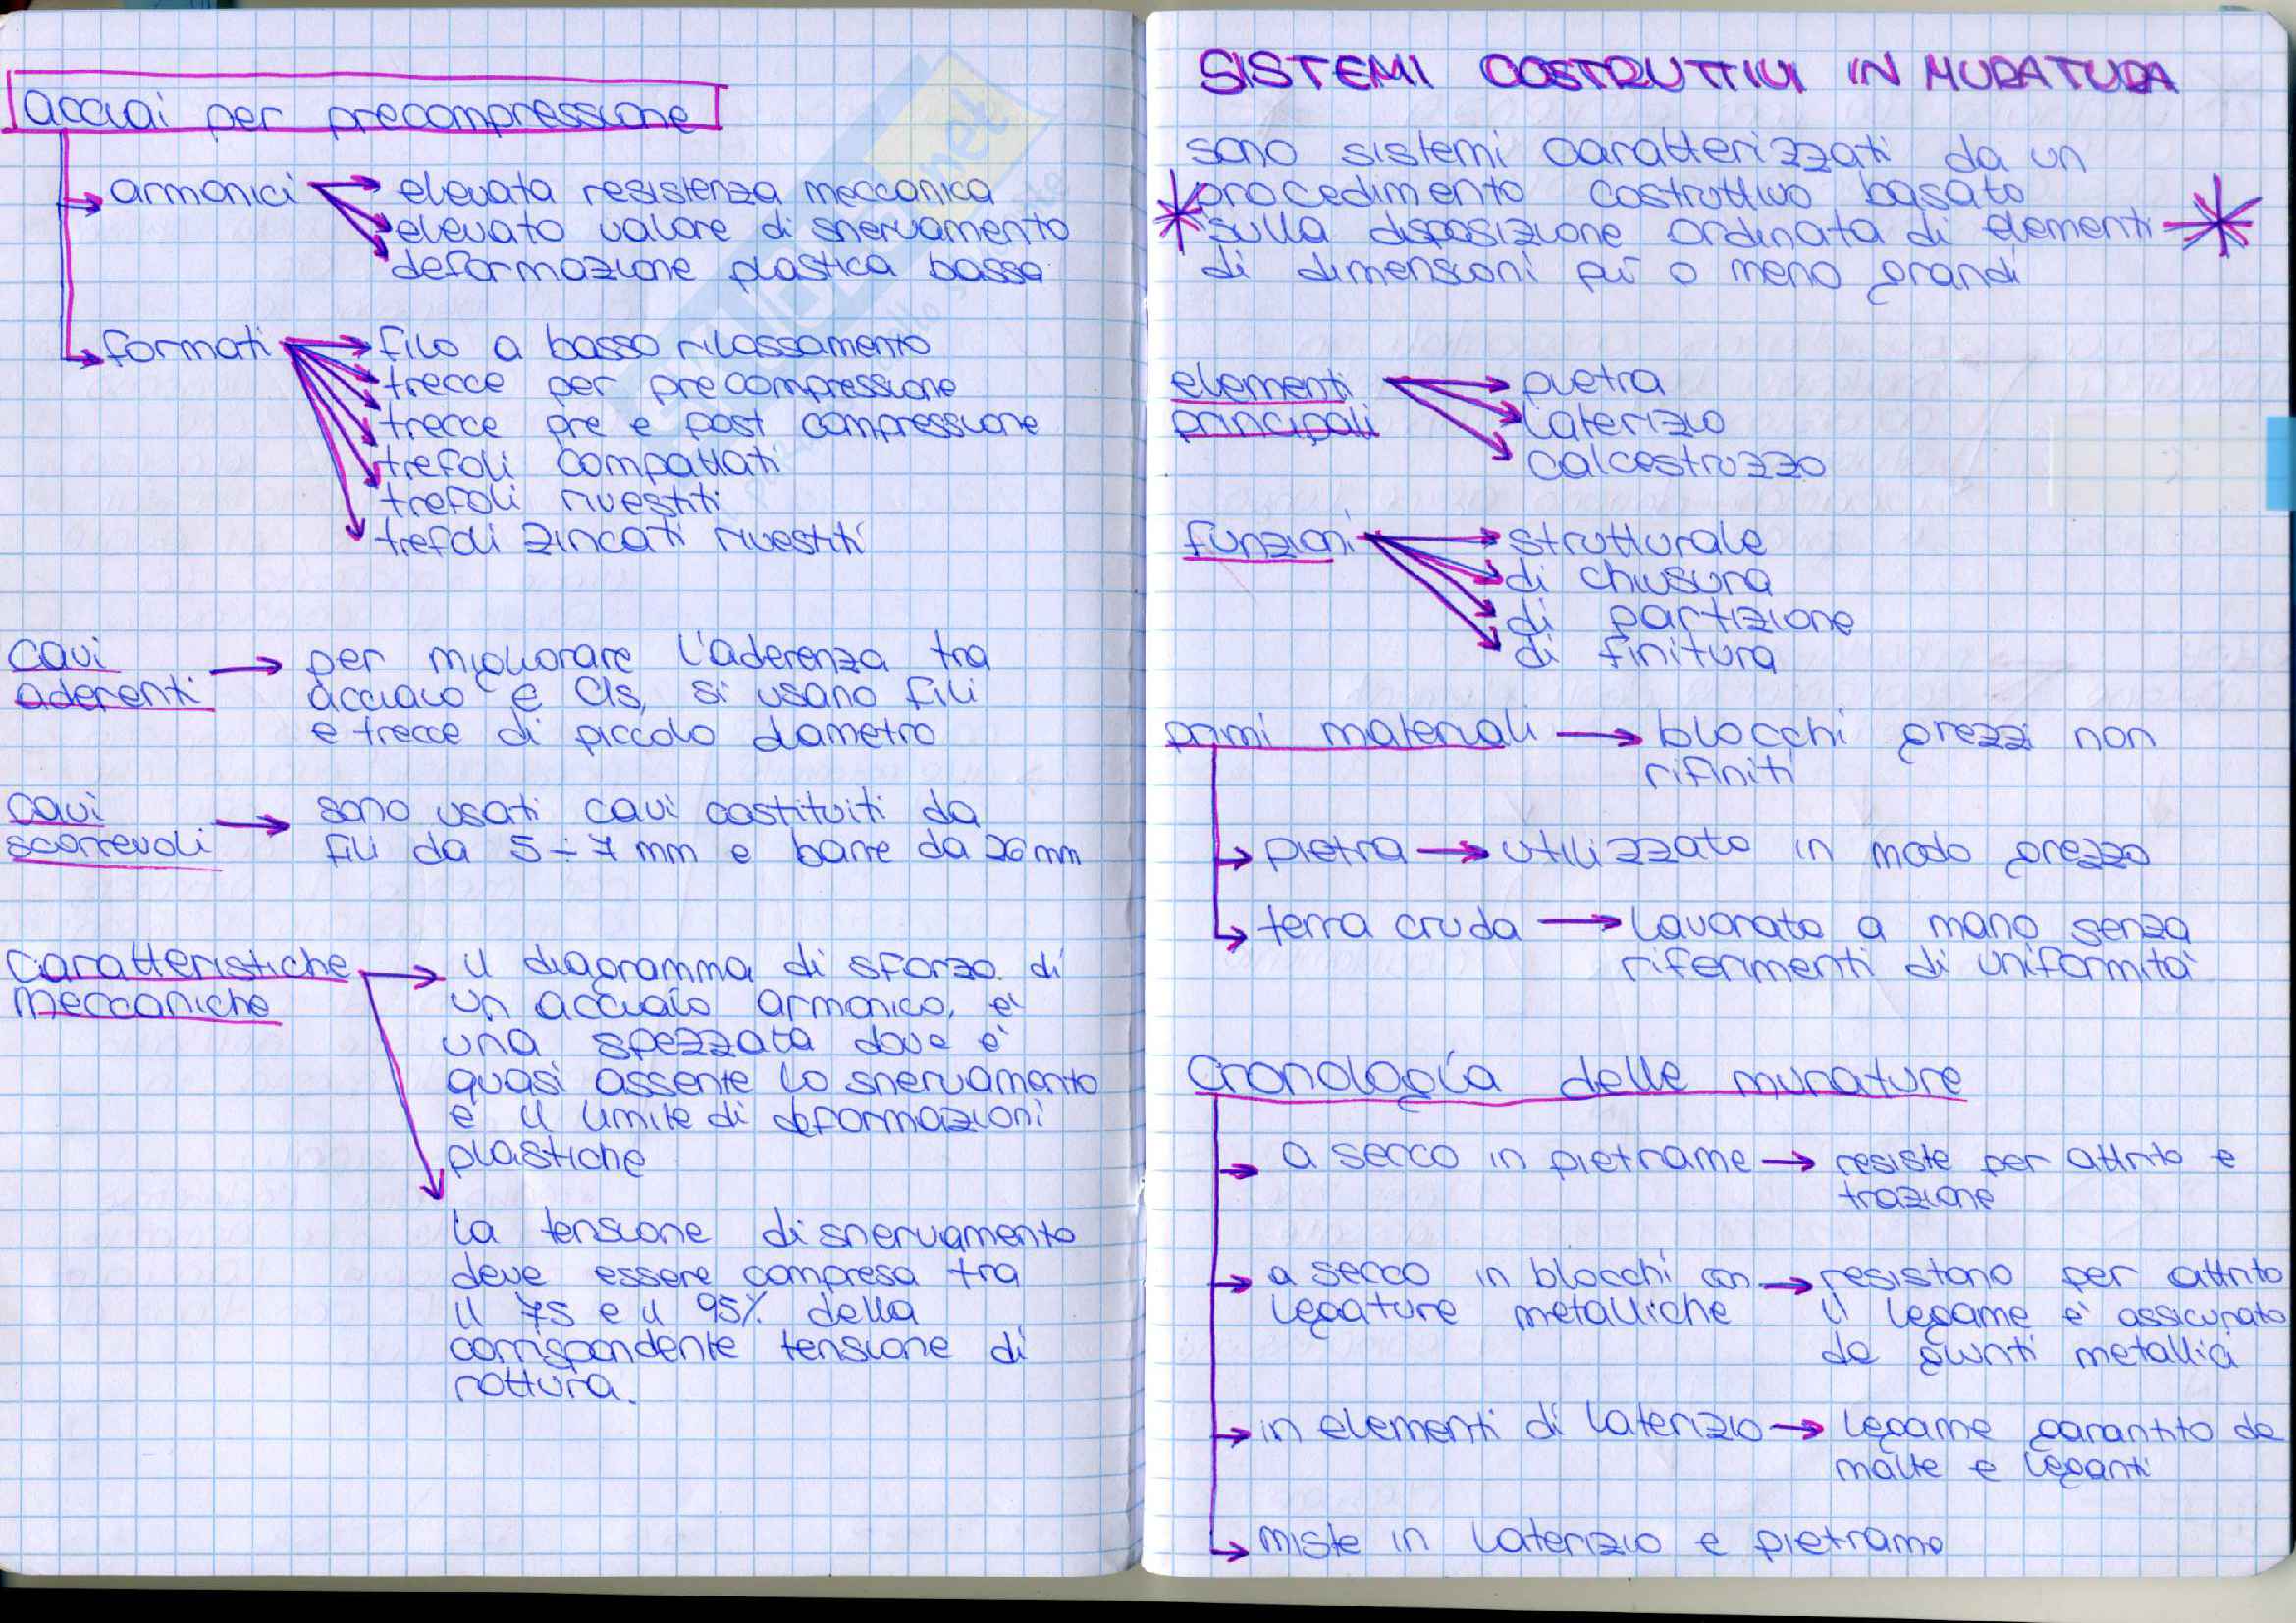 acciai per precompressione
armonici
elevata resistenza meccanica
elevato valore di snervamento
deformazione plastica bassa
formati
filo a basso rilassamento
trecce per precompressione
trecce pre e post compressione
trefoli compattati
trefoli rivestiti
trefoli zincati rivestiti
cavi
aderenti
per migliorare l'aderenza tra
acciaio e cls, si usano fili
e trecce di piccolo diametro
cavi
scorrevoli
sono usati cavi costituiti da
fili da 5÷7 mm e barre da 26 mm
caratteristiche
meccaniche
il diagramma di sforzo di
un acciaio armonico, è
una spezzata dove è
quasi assente lo snervamento
e il limite di deformazioni
plastiche
la tensione di snervamento
deve essere compresa tra
il 75 e il 95% della
corrispondente tensione di
rottura.
SISTEMI COSTRUTTIVI IN MURATURA
sono sistemi caratterizzati da un
procedimento costruttivo basato
sulla disposizione ordinata di elementi
di dimensioni più o meno grandi
elementi
principali
pietra
laterizio
calcestruzzo
funzioni
strutturale
di chiusura
di partizione
di finitura
primi materiali
blocchi grezzi non
rifiniti
pietra
utilizzato in modo grezzo
terra cruda
lavorato a mano senza
riferimenti di uniformità
Cronologia delle murature
a secco in pietrame
resiste per attrito e
trazione
a secco in blocchi con
legature metalliche
resistono per attrito
il legame è assicurato
da giunti metallici
in elementi di laterizio
legame garantito da
malte e leganti
miste in laterizio e pietrame